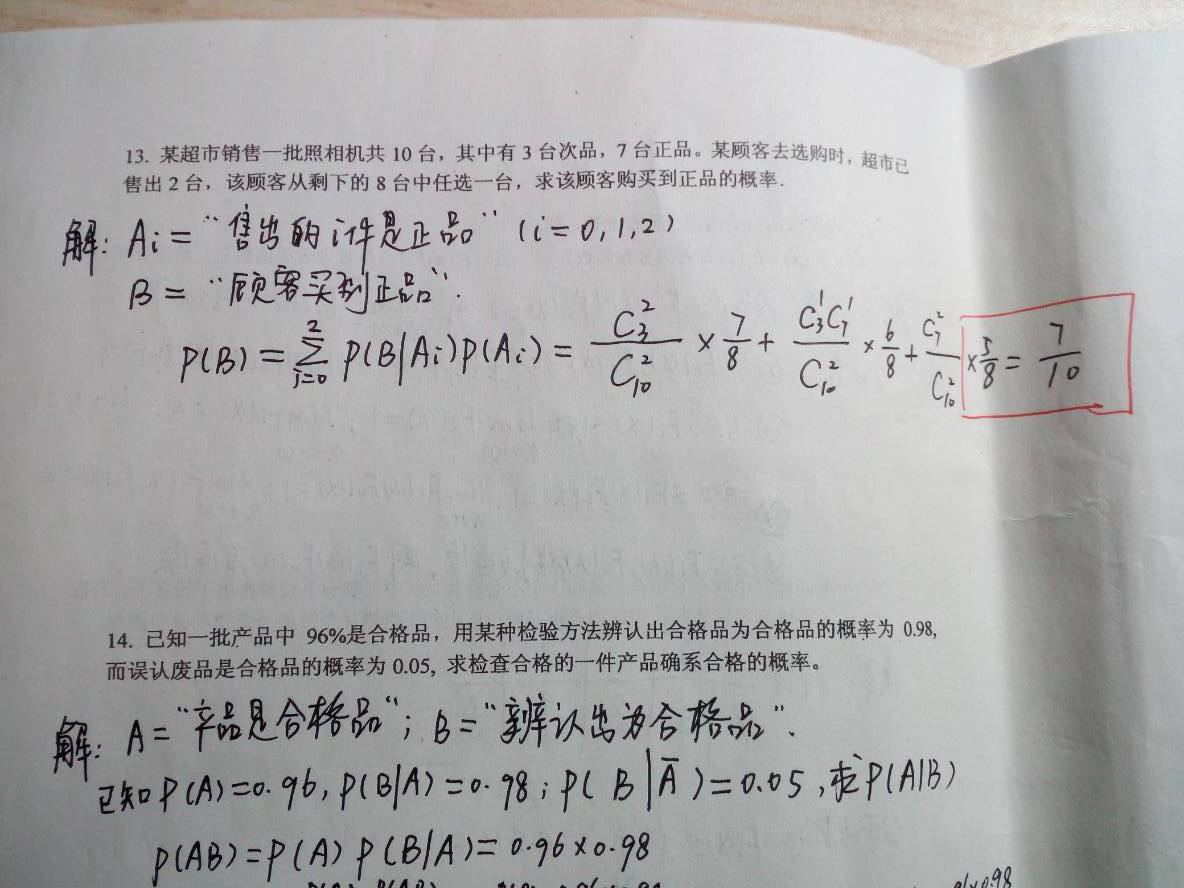 13. 某超市销售一批照相机共 10 台，其中有 3 台次品，7 台正品。某顾客去选购时，超市已
售出 2 台，该顾客从剩下的 8 台中任选一台，求该顾客购买到正品的概率.
解: Ai = "售出的i件是正品" (i=0,1,2)
B = "顾客买到正品".
P(B) = ∑_{i=0}^{2} P(B|Ai)P(Ai) = C_3^2/C_10^2 × 7/8 + C_3^1 C_7^1/C_10^2 × 6/8 + C_7^2/C_10^2 × 5/8 = 7/10
14. 已知一批产品中 96%是合格品，用某种检验方法辨认出合格品为合格品的概率为 0.98,
而误认废品是合格品的概率为 0.05, 求检查合格的一件产品确系合格的概率。
解: A = "产品是合格品"; B = "辨认出为合格品".
已知 P(A)=0.96, P(B|A)=0.98; P(B|Ā)=0.05, 求P(A|B)
P(AB)=P(A)P(B|A)=0.96×0.98